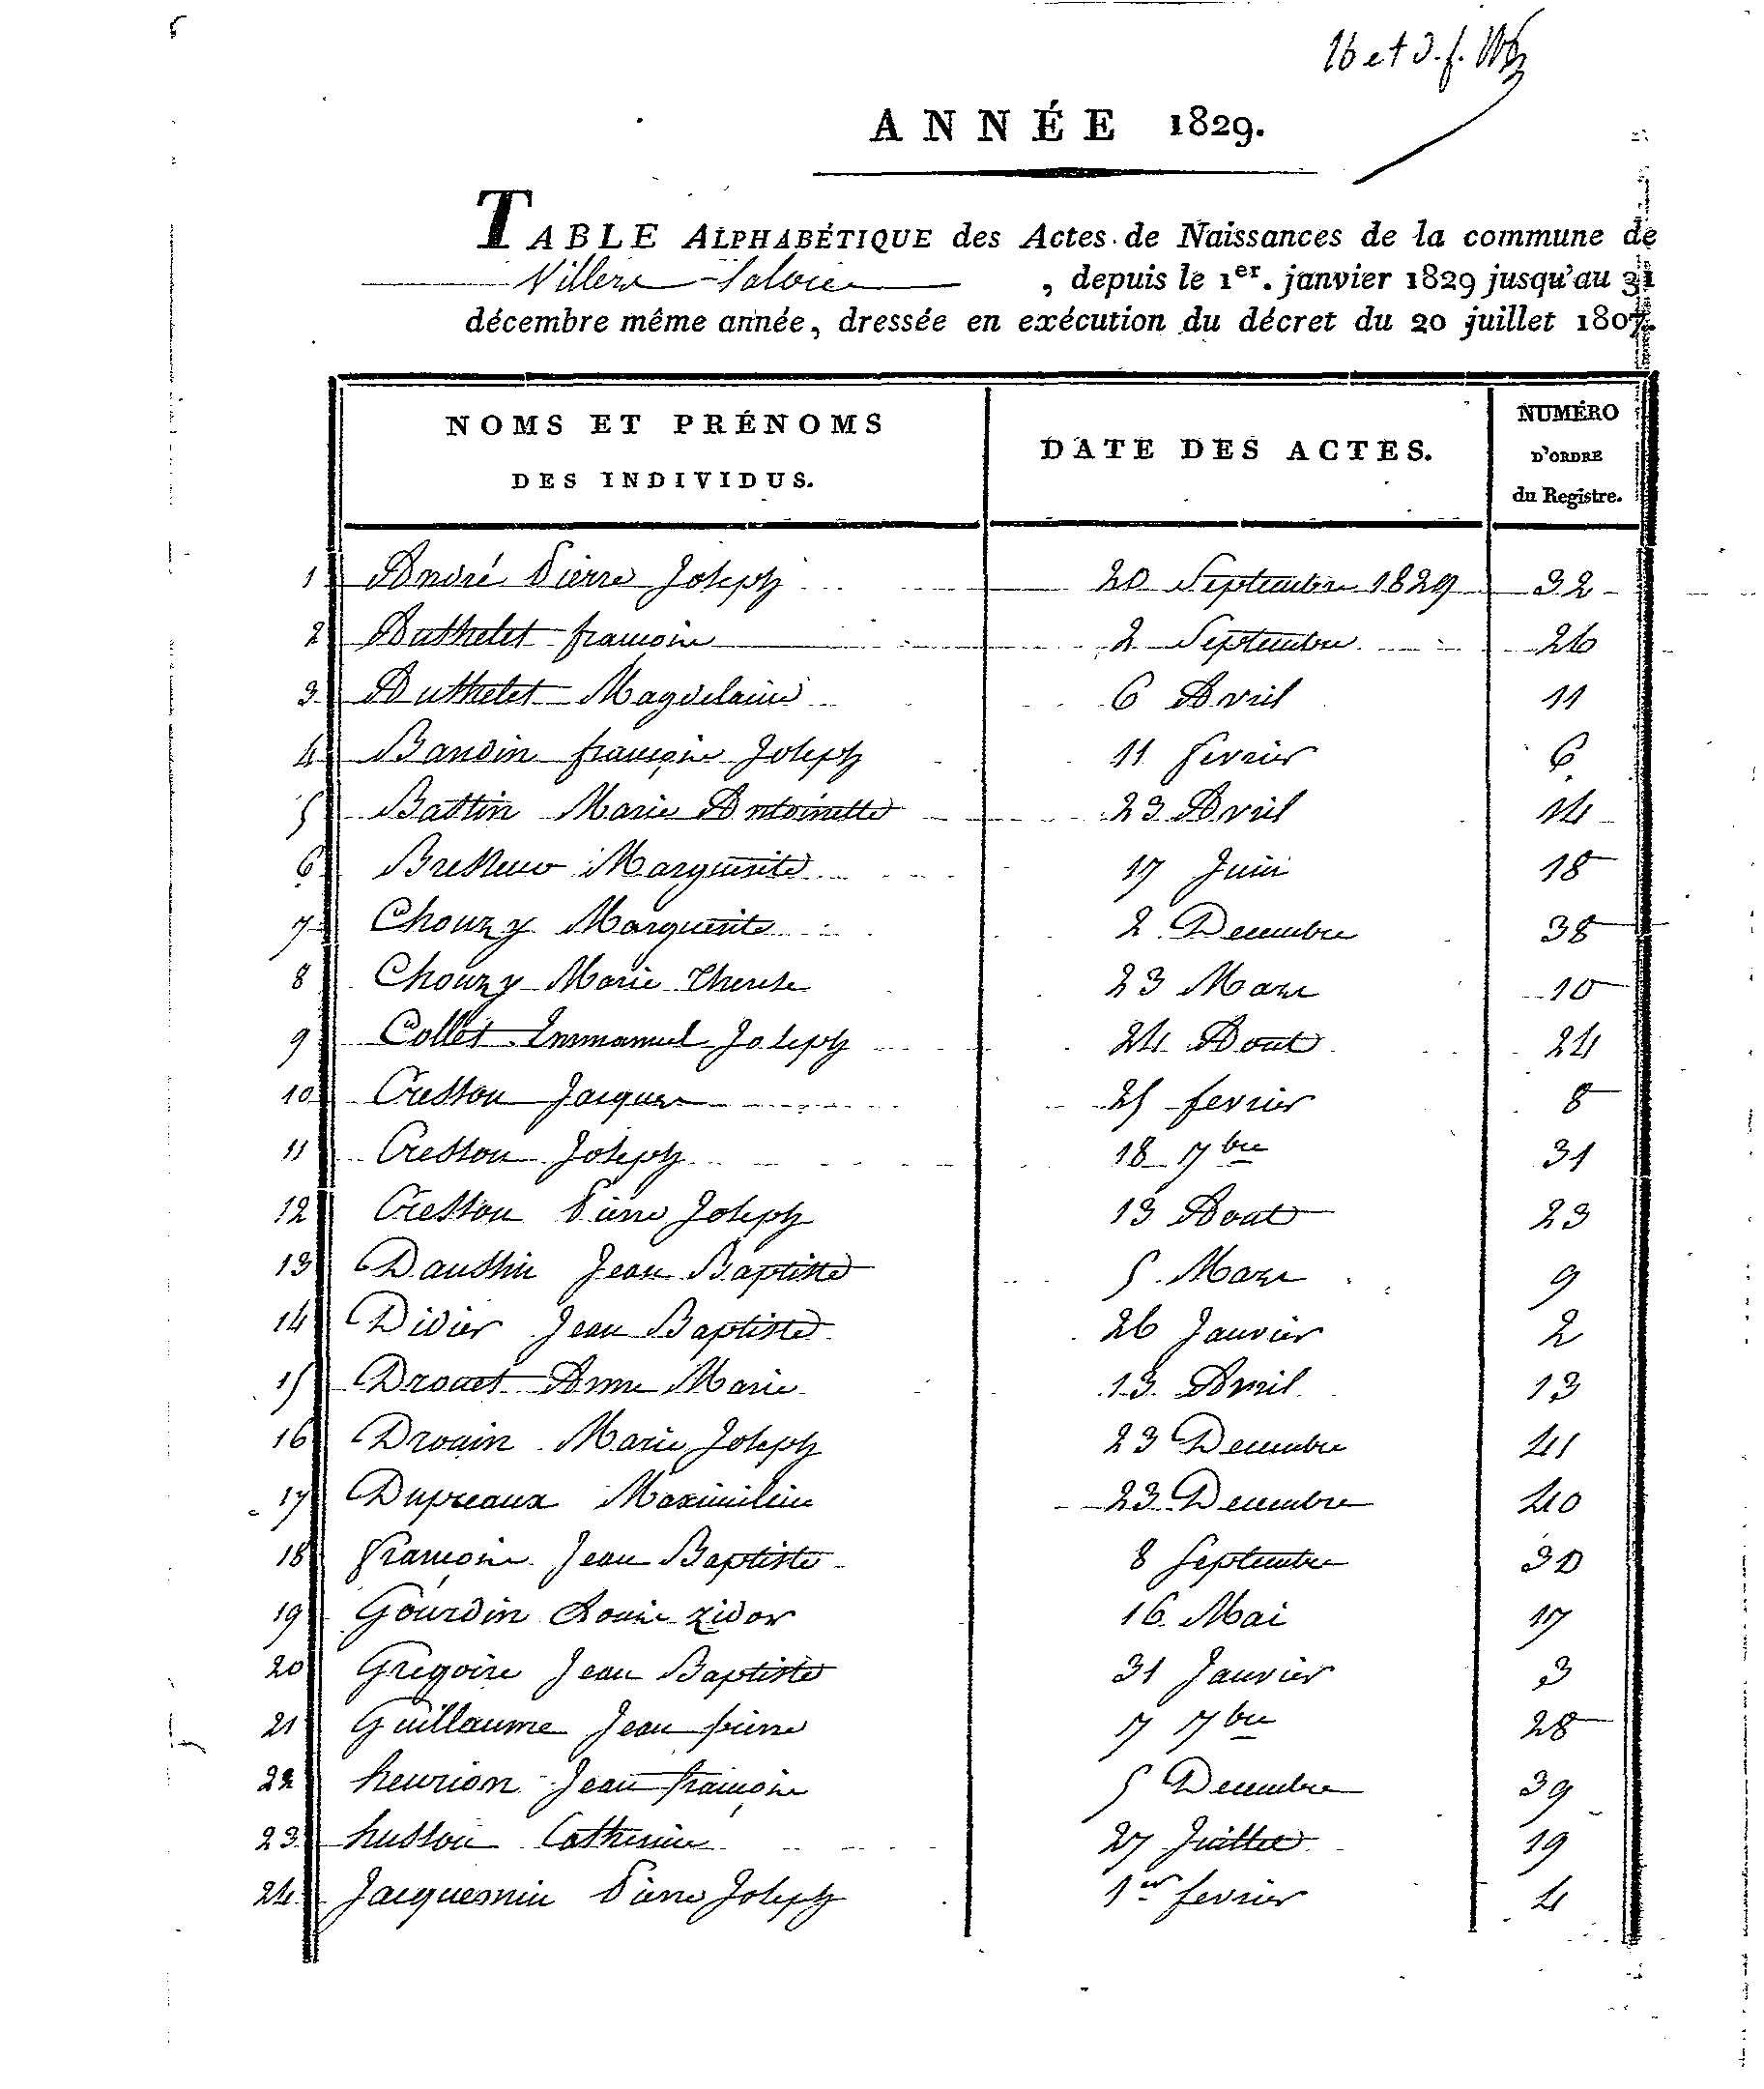 ANNÉE 1829.
TABLE ALPHABÉTIQUE des Actes de Naissances de la commune de
Villers , depuis le 1er. janvier 1829 jusqu'au 31
décembre même année, dressée en exécution du décret du 20 juillet 1807.
NOMS ET PRÉNOMS DES INDIVIDUS. DATE DES ACTES. NUMÉRO D'ORDRE du Registre.
1 André Pierre Joseph 20 Septembre 1829 32
2 Authelet françois 2 Septembre 26
3 Authelet Magdelaine 6 Avril 11
4 Baudin françois Joseph 11 fevrier 6
5 Bastin Marie Antoinette 23 Avril 14
6 Marguerite 17 Juin 18
7 Chouzy Marguerite 2 Decembre 38
8 Chouzy Marie Therese 23 Mars 10
9 Collet Emmanuel Joseph 24 Aout 24
10 Cresson Jacques 25 fevrier 8
11 Cresson Joseph 18 7bre 31
12 Cresson Pierre Joseph 13 Aout 23
13 Daussin Jean Baptiste 5 Mars 9
14 Didier Jean Baptiste 26 Janvier 2
15 Drouet Anne Marie 13 Avril 13
16 Drouin Marie Joseph 23 Decembre 41
17 Dupreaux Maximilien 23 Decembre 40
18 françois Jean Baptiste 8 Septembre 30
19 Gourdin Louis zidor 16 Mai 17
20 Gregoire Jean Baptiste 31 Janvier 3
21 Guillaume Jean pierre 7 7bre 28
22 henrion Jean françois 5 Decembre 39
23 husson Catherine 27 Juillet 19
24 Jacquemin Pierre Joseph 1er fevrier 4